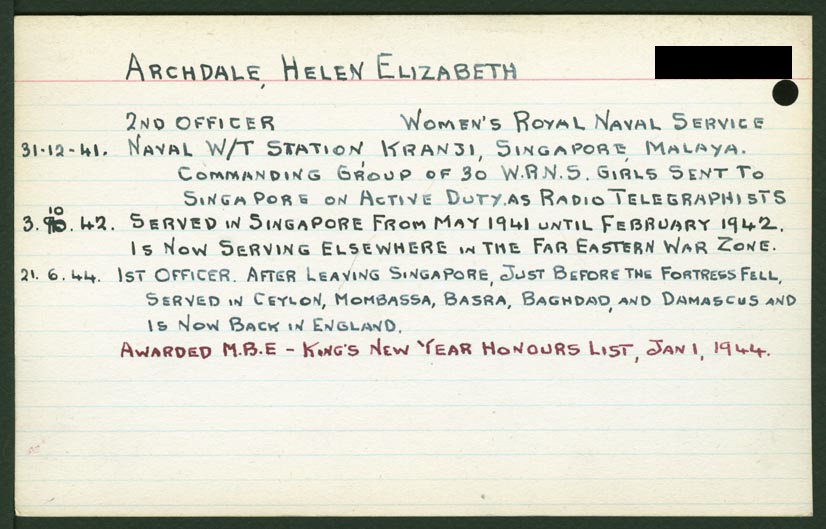 ARCHDALE, HELEN ELIZABETH
2ND OFFICER WOMEN'S ROYAL NAVAL SERVICE
31-12-41. NAVAL W/T STATION, KRANJI, SINGAPORE, MALAYA.
COMMANDING GROUP OF 30 W.R.N.S. GIRLS SENT TO
SINGAPORE ON ACTIVE DUTY AS RADIO TELEGRAPHISTS
3.10.42. SERVED IN SINGAPORE FROM MAY 1941 UNTIL FEBRUARY 1942.
IS NOW SERVING ELSEWHERE IN THE FAR EASTERN WAR ZONE.
21.6.44. 1ST OFFICER. AFTER LEAVING SINGAPORE, JUST BEFORE THE FORTRESS FELL,
SERVED IN CEYLON, MOMBASSA, BASRA, BAGHDAD, AND DAMASCUS AND
IS NOW BACK IN ENGLAND.
AWARDED M.B.E - KING'S NEW YEAR HONOURS LIST, JAN 1, 1944.